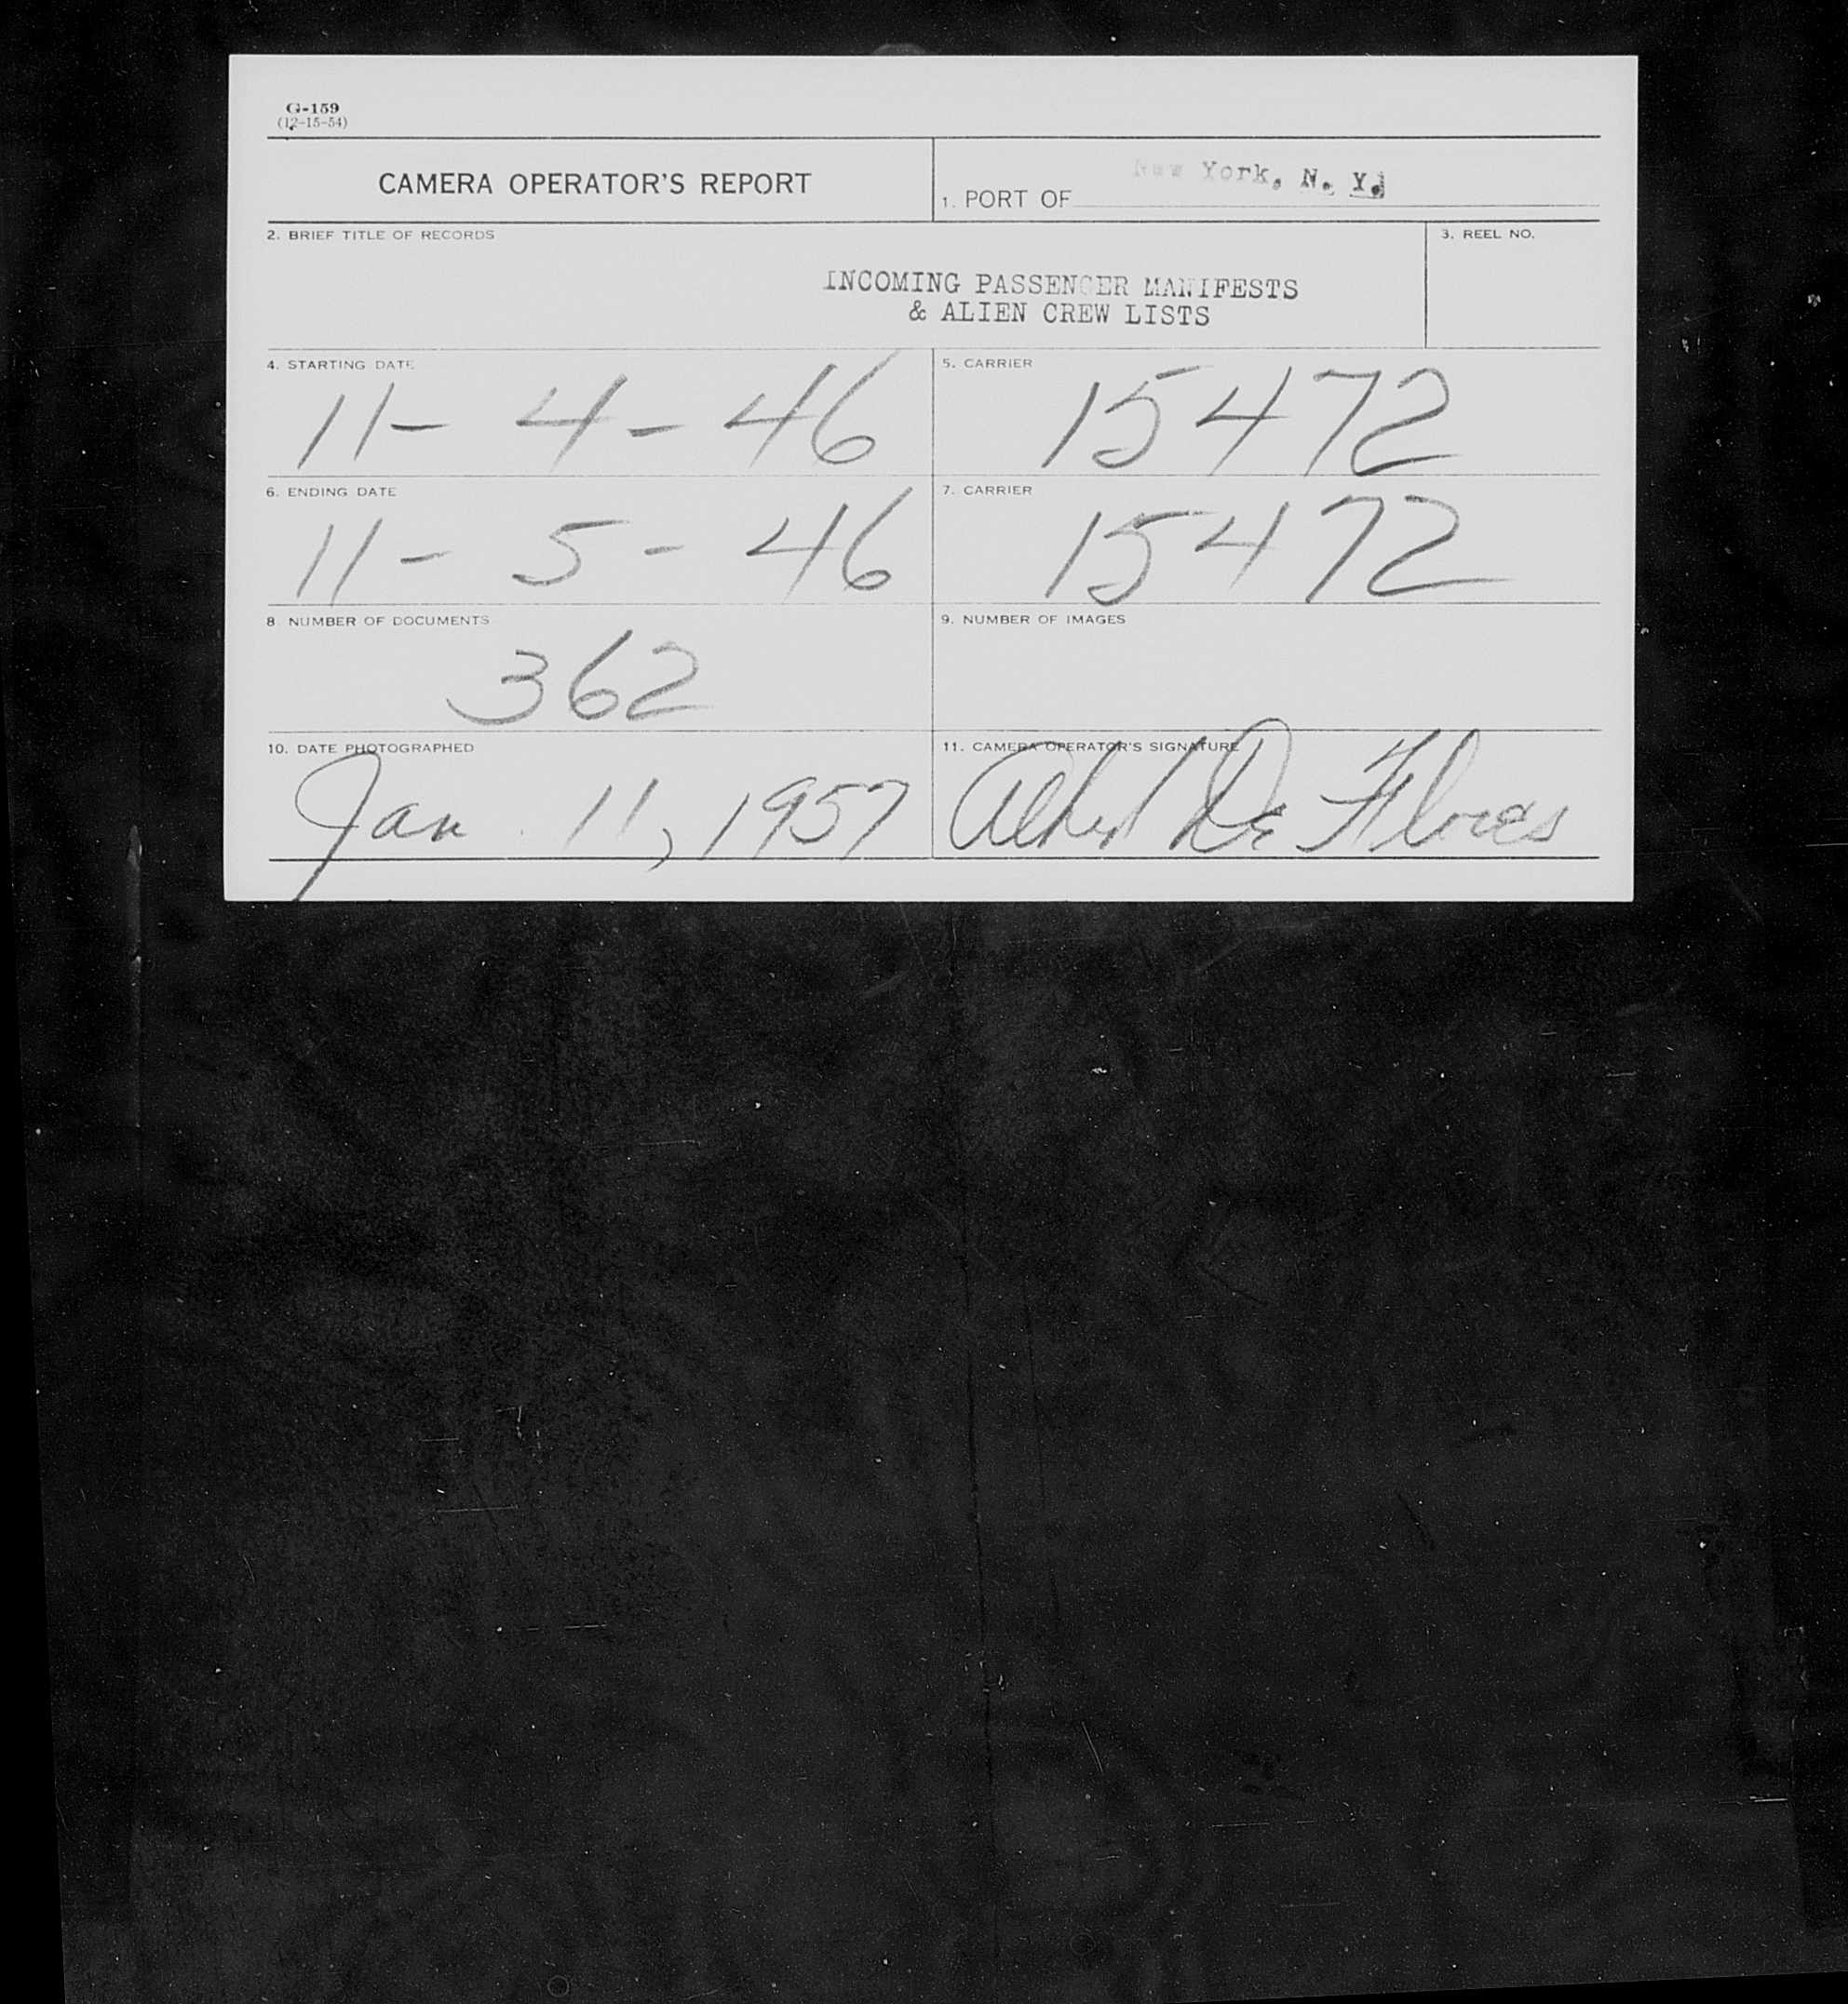 G-159
(12-15-54)
CAMERA OPERATOR'S REPORT
1. PORT OF New York, N. Y.
2. BRIEF TITLE OF RECORDS
3. REEL NO.
INCOMING PASSENGER MANIFESTS
& ALIEN CREW LISTS
4. STARTING DATE
11- 4 - 46
5. CARRIER
15472
6. ENDING DATE
11- 5 - 46
7. CARRIER
15472
8. NUMBER OF DOCUMENTS
362
9. NUMBER OF IMAGES
10. DATE PHOTOGRAPHED
Jan. 11, 1957
11. CAMERA OPERATOR'S SIGNATURE
Albert De